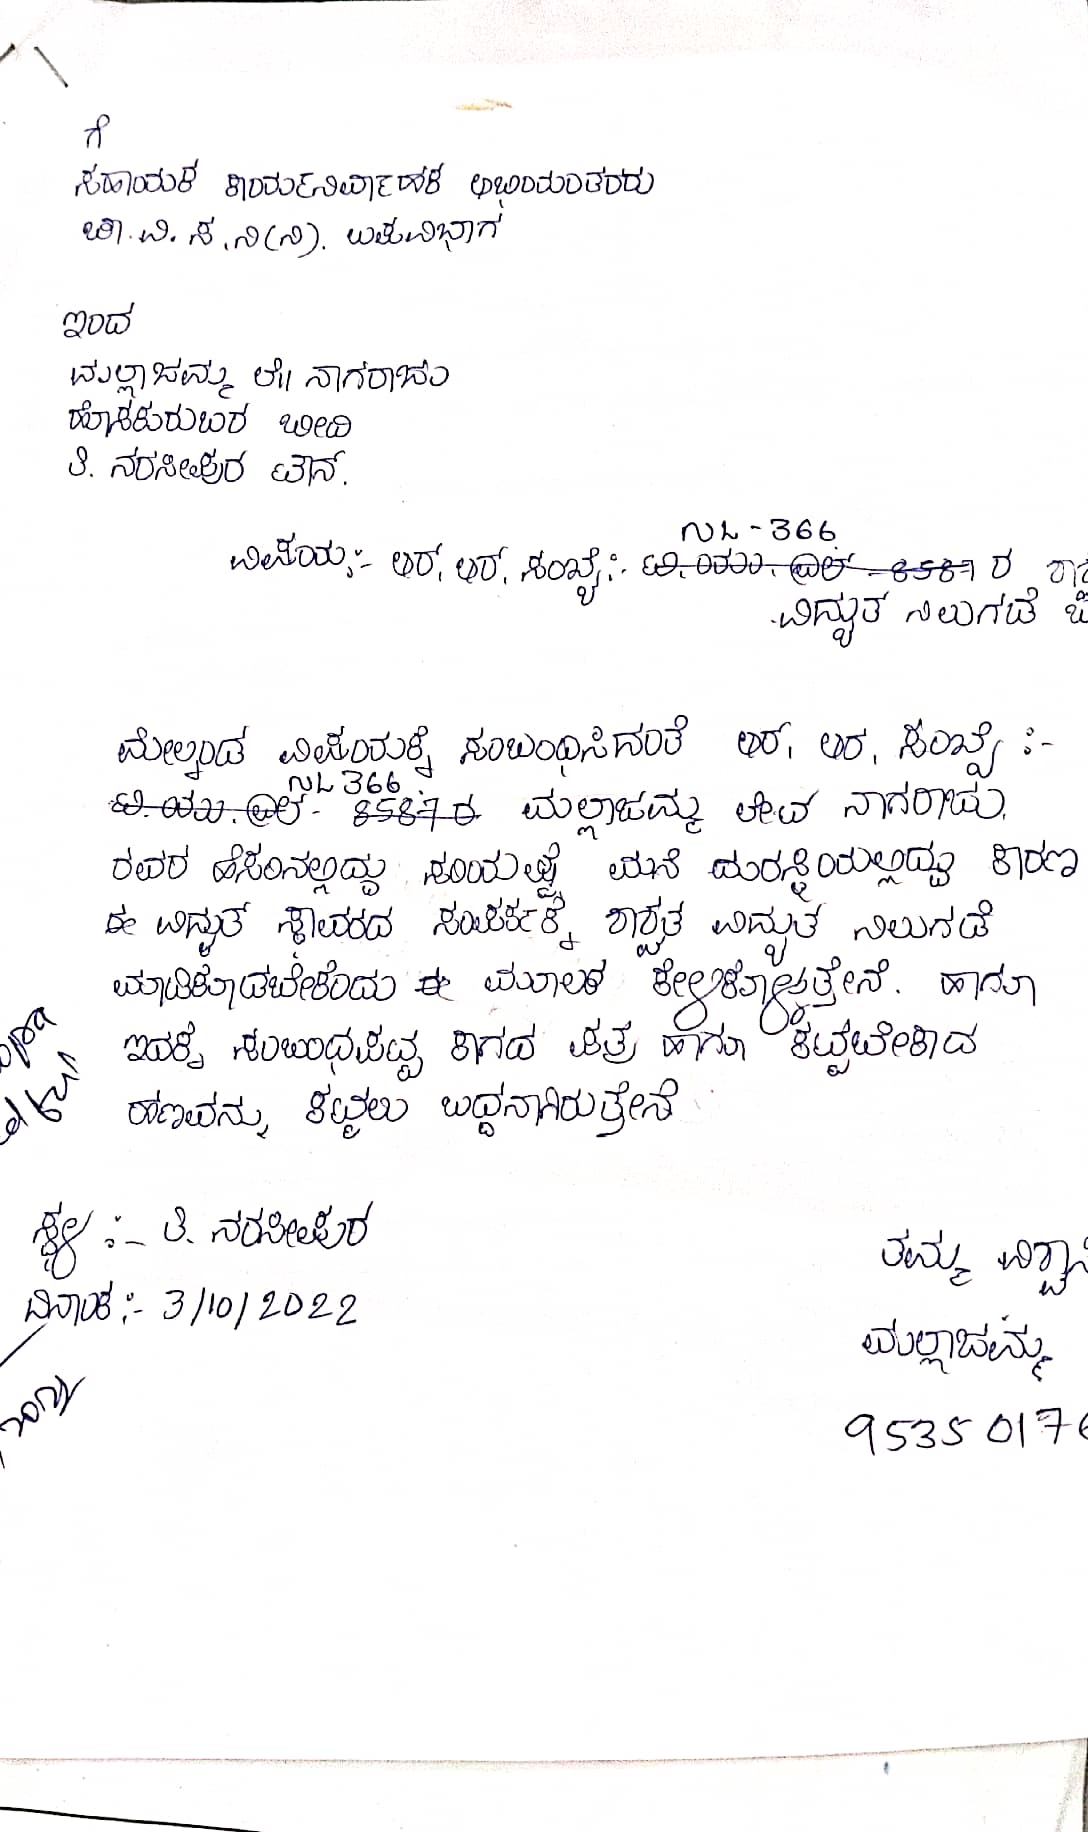 ಗೆ
ಸಹಾಯಕ ಕಾರ್ಯನಿರ್ವಾಹಕ ಅಭಿಯಂತರರು
ಚಾ. ವಿ. ಸ. ನಿ(ನಿ). ಉಪವಿಭಾಗ
ಇಂದ
ಮಲ್ಲಾಜಮ್ಮ ಲೇ|| ನಾಗರಾಜು
ಹೊಸಕುರುಬರ ಬೀದಿ
ತಿ. ನರಸೀಪುರ ಟೌನ್.
NL - 366
ವಿಷಯ:- ಆರ್. ಆರ್. ಸಂಖ್ಯೆ:- ಟಿ. ಯು. ಎಲ್ - 8587 ರ
ವಿದ್ಯುತ ನಿಲುಗಡೆ
ಮೇಲ್ಕಂಡ ವಿಷಯಕ್ಕೆ ಸಂಬಂಧಿಸಿದಂತೆ ಆರ್. ಆರ. ಸಂಖ್ಯೆ :-
NL 366
ಟಿ. ಯು. ಎಲ್ - 8587 ರ ಮಲ್ಲಾಜಮ್ಮ ಲೇಟ ನಾಗರಾಜು.
ರವರ ಹೆಸರಿನಲ್ಲಿದ್ದು ಮನೆ ದುರಸ್ಥಿಯಲ್ಲಿದ್ದು ಕಾರಣ
ಈ ವಿದ್ಯುತ್ ಸ್ಥಾವರದ ಸಂಪರ್ಕಕ್ಕೆ ಶಾಶ್ವತ ವಿದ್ಯುತ ನಿಲುಗಡೆ
ಮಾಡಿಕೊಡಬೇಕೆಂದು ಈ ಮೂಲಕ ಕೇಳಿಕೊಳ್ಳುತ್ತೇನೆ. ಹಾಗೂ
ಇದಕ್ಕೆ ಸಂಬಂಧಪಟ್ಟ ಕಾಗದ ಪತ್ರ ಹಾಗೂ ಕಟ್ಟಬೇಕಾದ
ಹಣವನ್ನು ಕಟ್ಟಲು ಬದ್ದನಾಗಿರುತ್ತೇನೆ
ಸ್ಥಳ :- ತಿ. ನರಸೀಪುರ
ದಿನಾಂಕ :- 3/10/2022
ತಮ್ಮ
ಮಲ್ಲಾಜಮ್ಮ
95350176